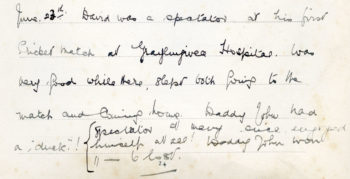 June. 23rd David was a spectator at his first
Cricket match at Graylingwell Hospital. Was
very good while there, slept both going to the
match and coming home. Daddy John had
a "duck"! spectator
himself at all! Daddy John won